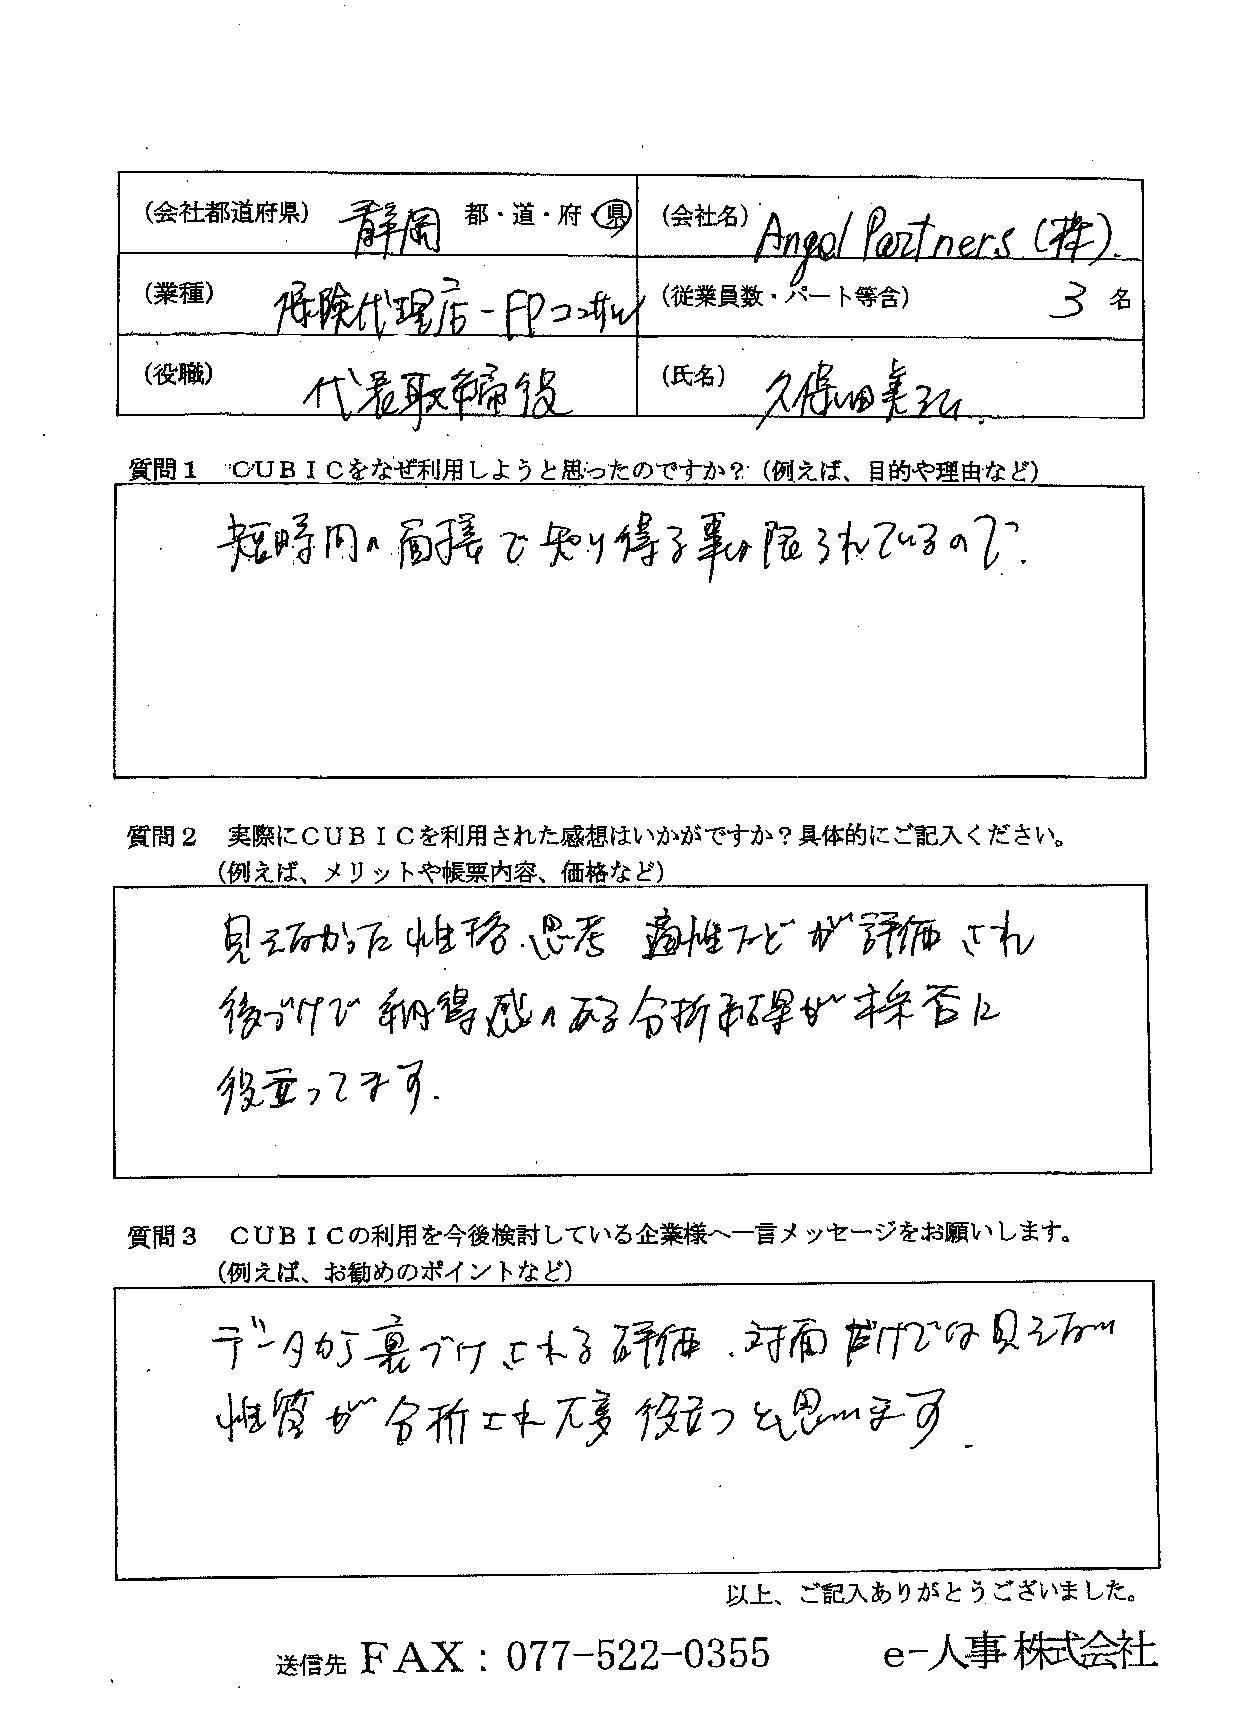 (会社都道府県) 静岡 都・道・府・県 (会社名) Angel Partners (株).
(業種) 保険代理店-FPコンサル (従業員数・パート等含) 3 名
(役職) 代表取締役 (氏名) 久保田
質問1 CUBICをなぜ利用しようと思ったのですか?(例えば、目的や理由など)
短時間の面接で知り得る事は限られているので.
質問2 実際にCUBICを利用された感想はいかがですか?具体的にご記入ください。
(例えば、メリットや帳票内容、価格など)
見えなかった性格.思考 適性などが評価され
後づけで納得感のある分析結果が採否に
役立ってます.
質問3 CUBICの利用を今後検討している企業様へ一言メッセージをお願いします。
(例えば、お勧めのポイントなど)
データから裏づけされる評価、対面だけでは見えない
性質が分析され大変役立つと思います.
以上、ご記入ありがとうございました。
送信先 FAX:077-522-0355 e-人事株式会社